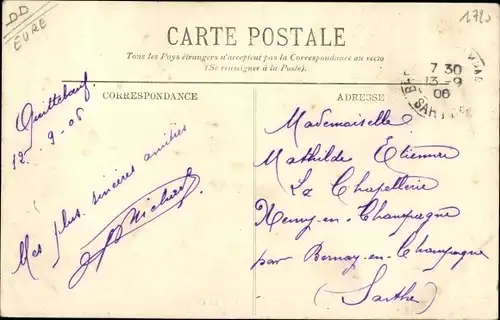 DD
EURE
1720
CARTE POSTALE
Tous les Pays étrangers n'acceptent pas la Correspondance au recto
(Se renseigner à la Poste).
7 30
13-9
06
SARTHE
CORRESPONDANCE
ADRESSE
Quittebeuf
12-9-06
Mes plus sincères amitiés
Mademoiselle
Mathilde Etienne
La Chapellerie
en-Champagne
par Bernay-en-Champagne
(Sarthe)